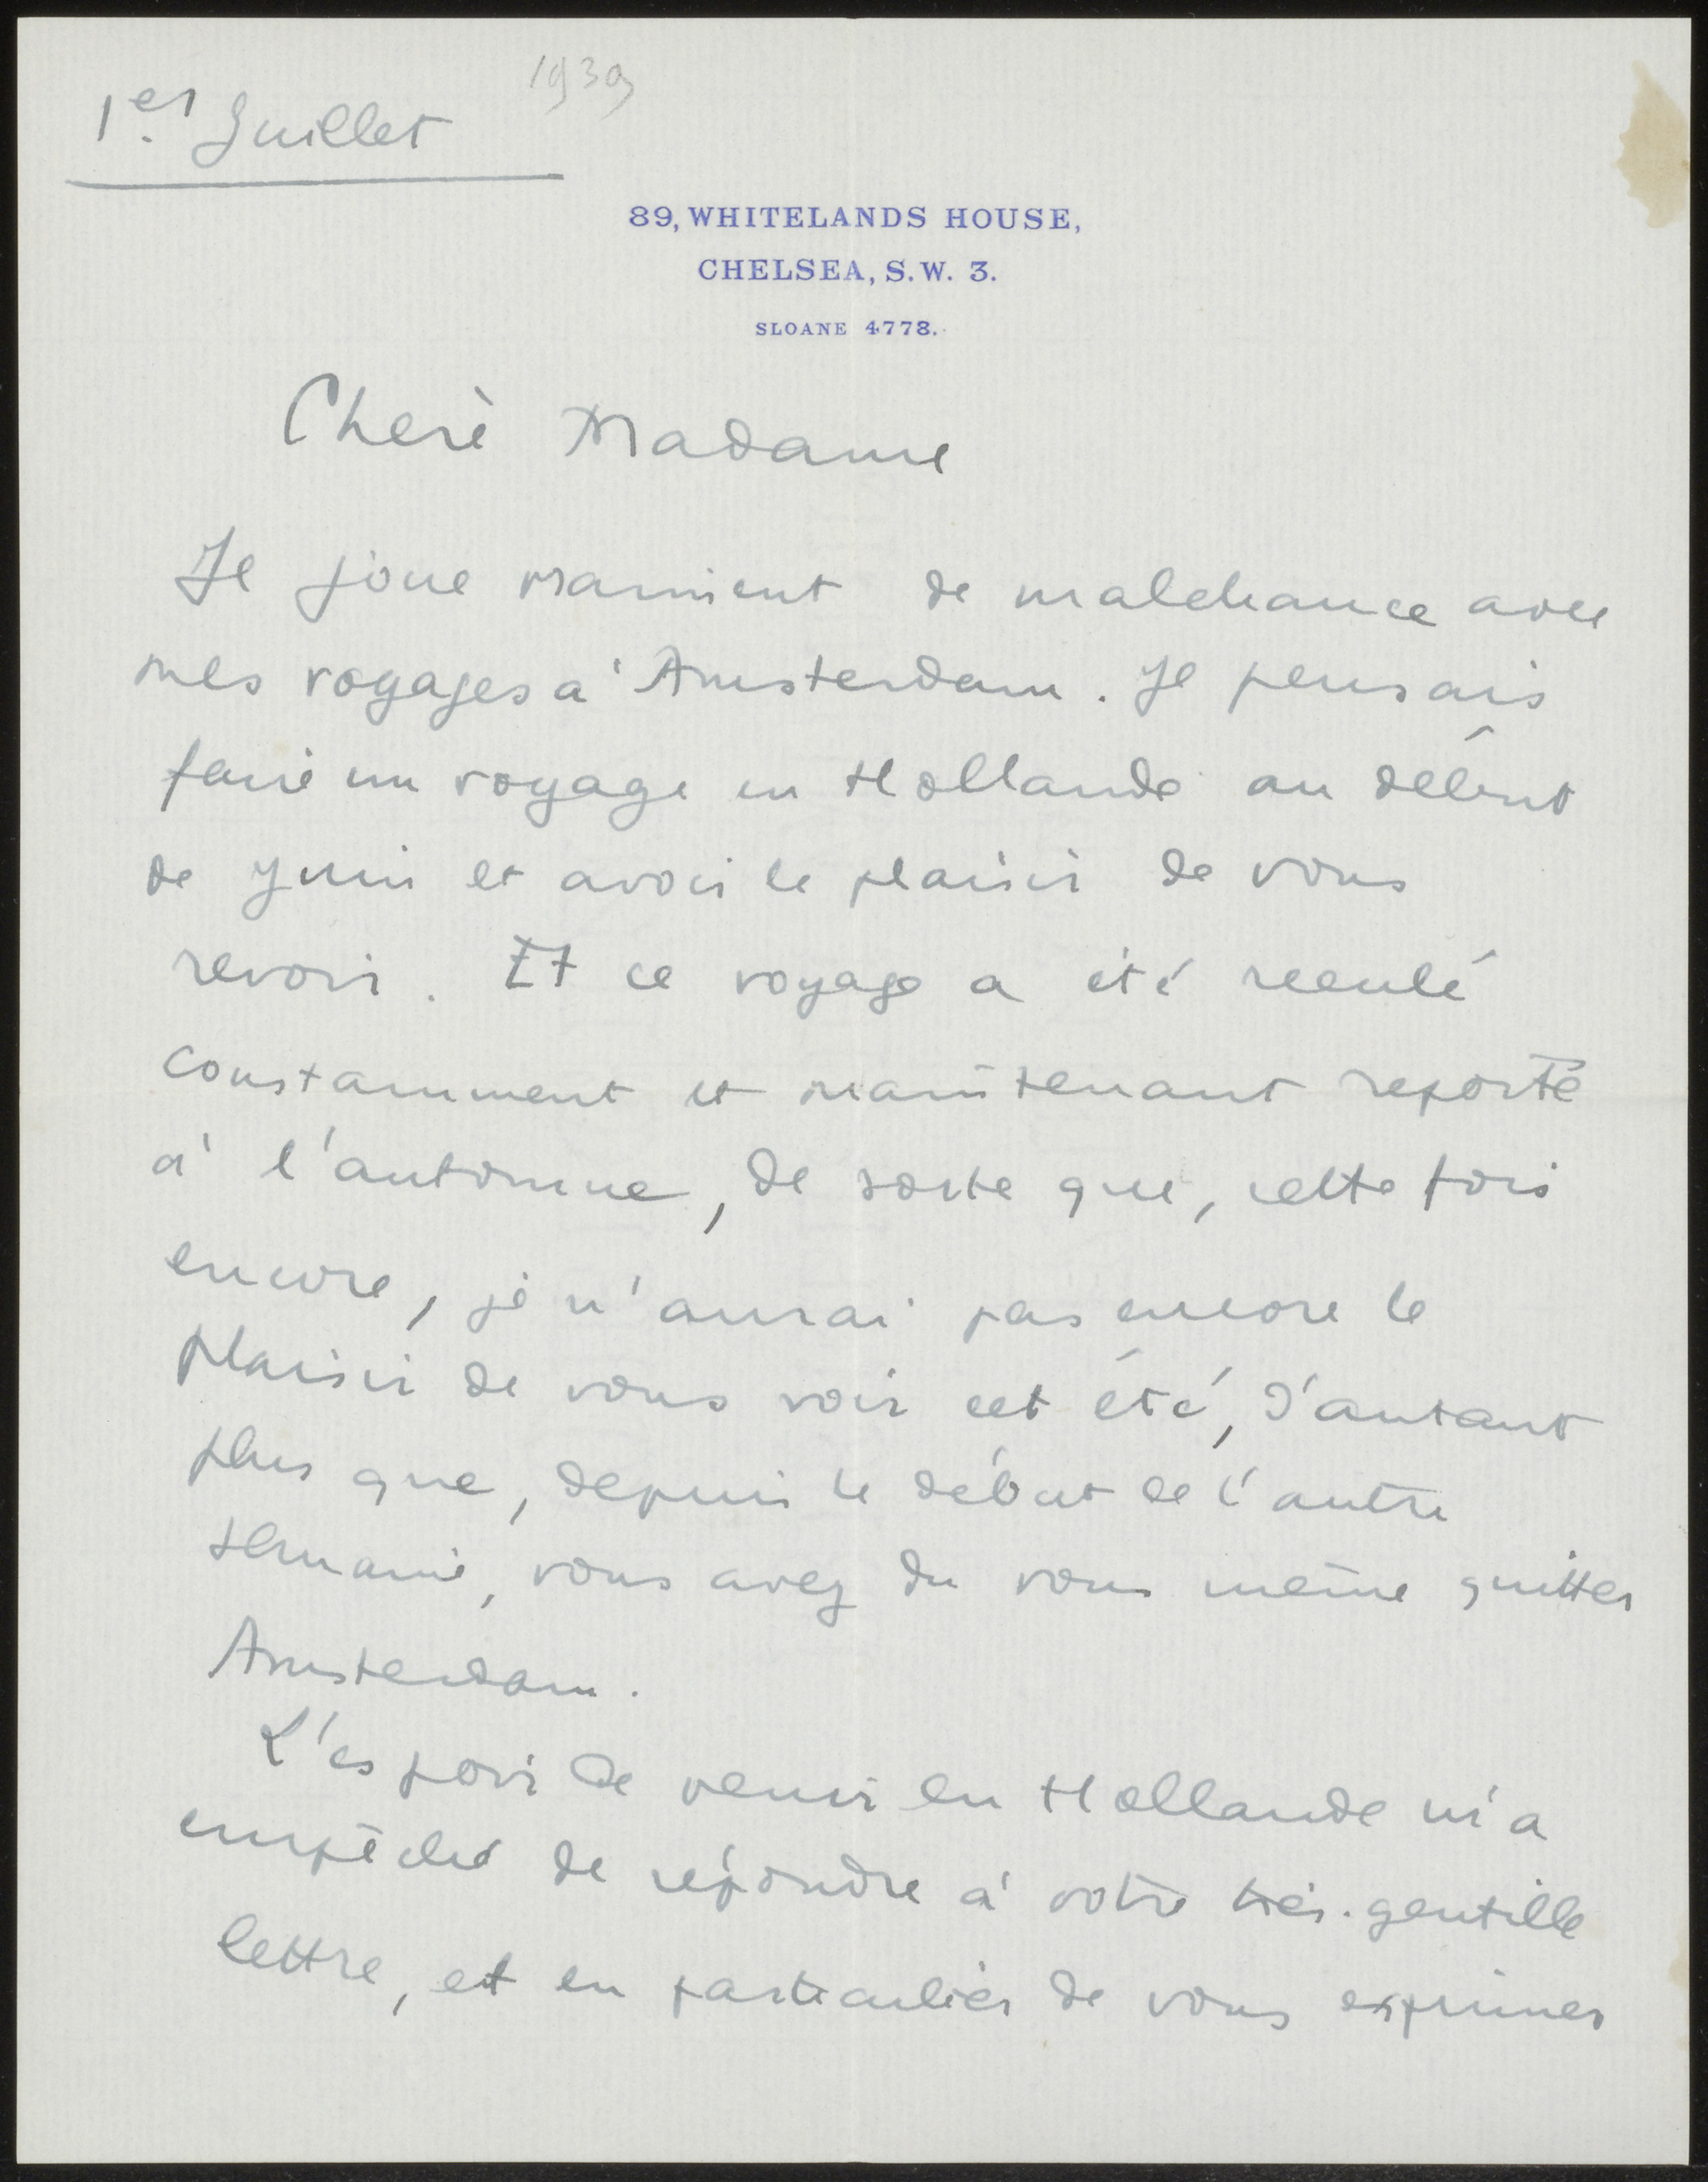 1939
1er Juillet
89, WHITELANDS HOUSE,
CHELSEA, S.W. 3.
SLOANE 4778.
Chere Madame
Je joue vraiment de malchance avec
mes voyages à Amsterdam. Je pensais
faire un voyage en Hollande au début
de Juin et avoir le plaisir de vous
revoir. Et ce voyage a été reculé
constamment et maintenant reporté
à l'automne, de sorte que, cette fois
encore, je n'aurai pas encore le
plaisir de vous voir cet été, d'autant
plus que, depuis le début de l'autre
semaine, vous avez du vous même quitter
Amsterdam.
L'espoir de venir en Hollande m'a
empêché de répondre à votre très gentille
lettre, et en particulier de vous exprimer